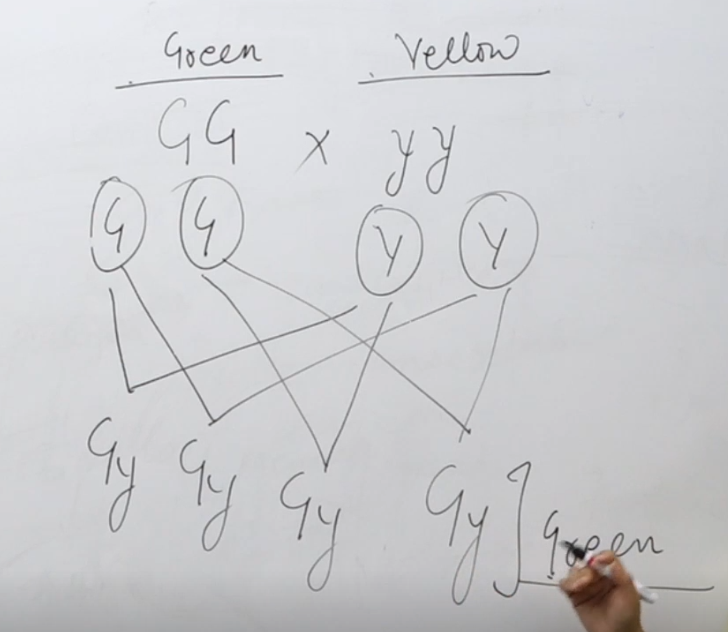 Green Yellow
GG x yy
G G y y
Gy Gy Gy Gy ] Green